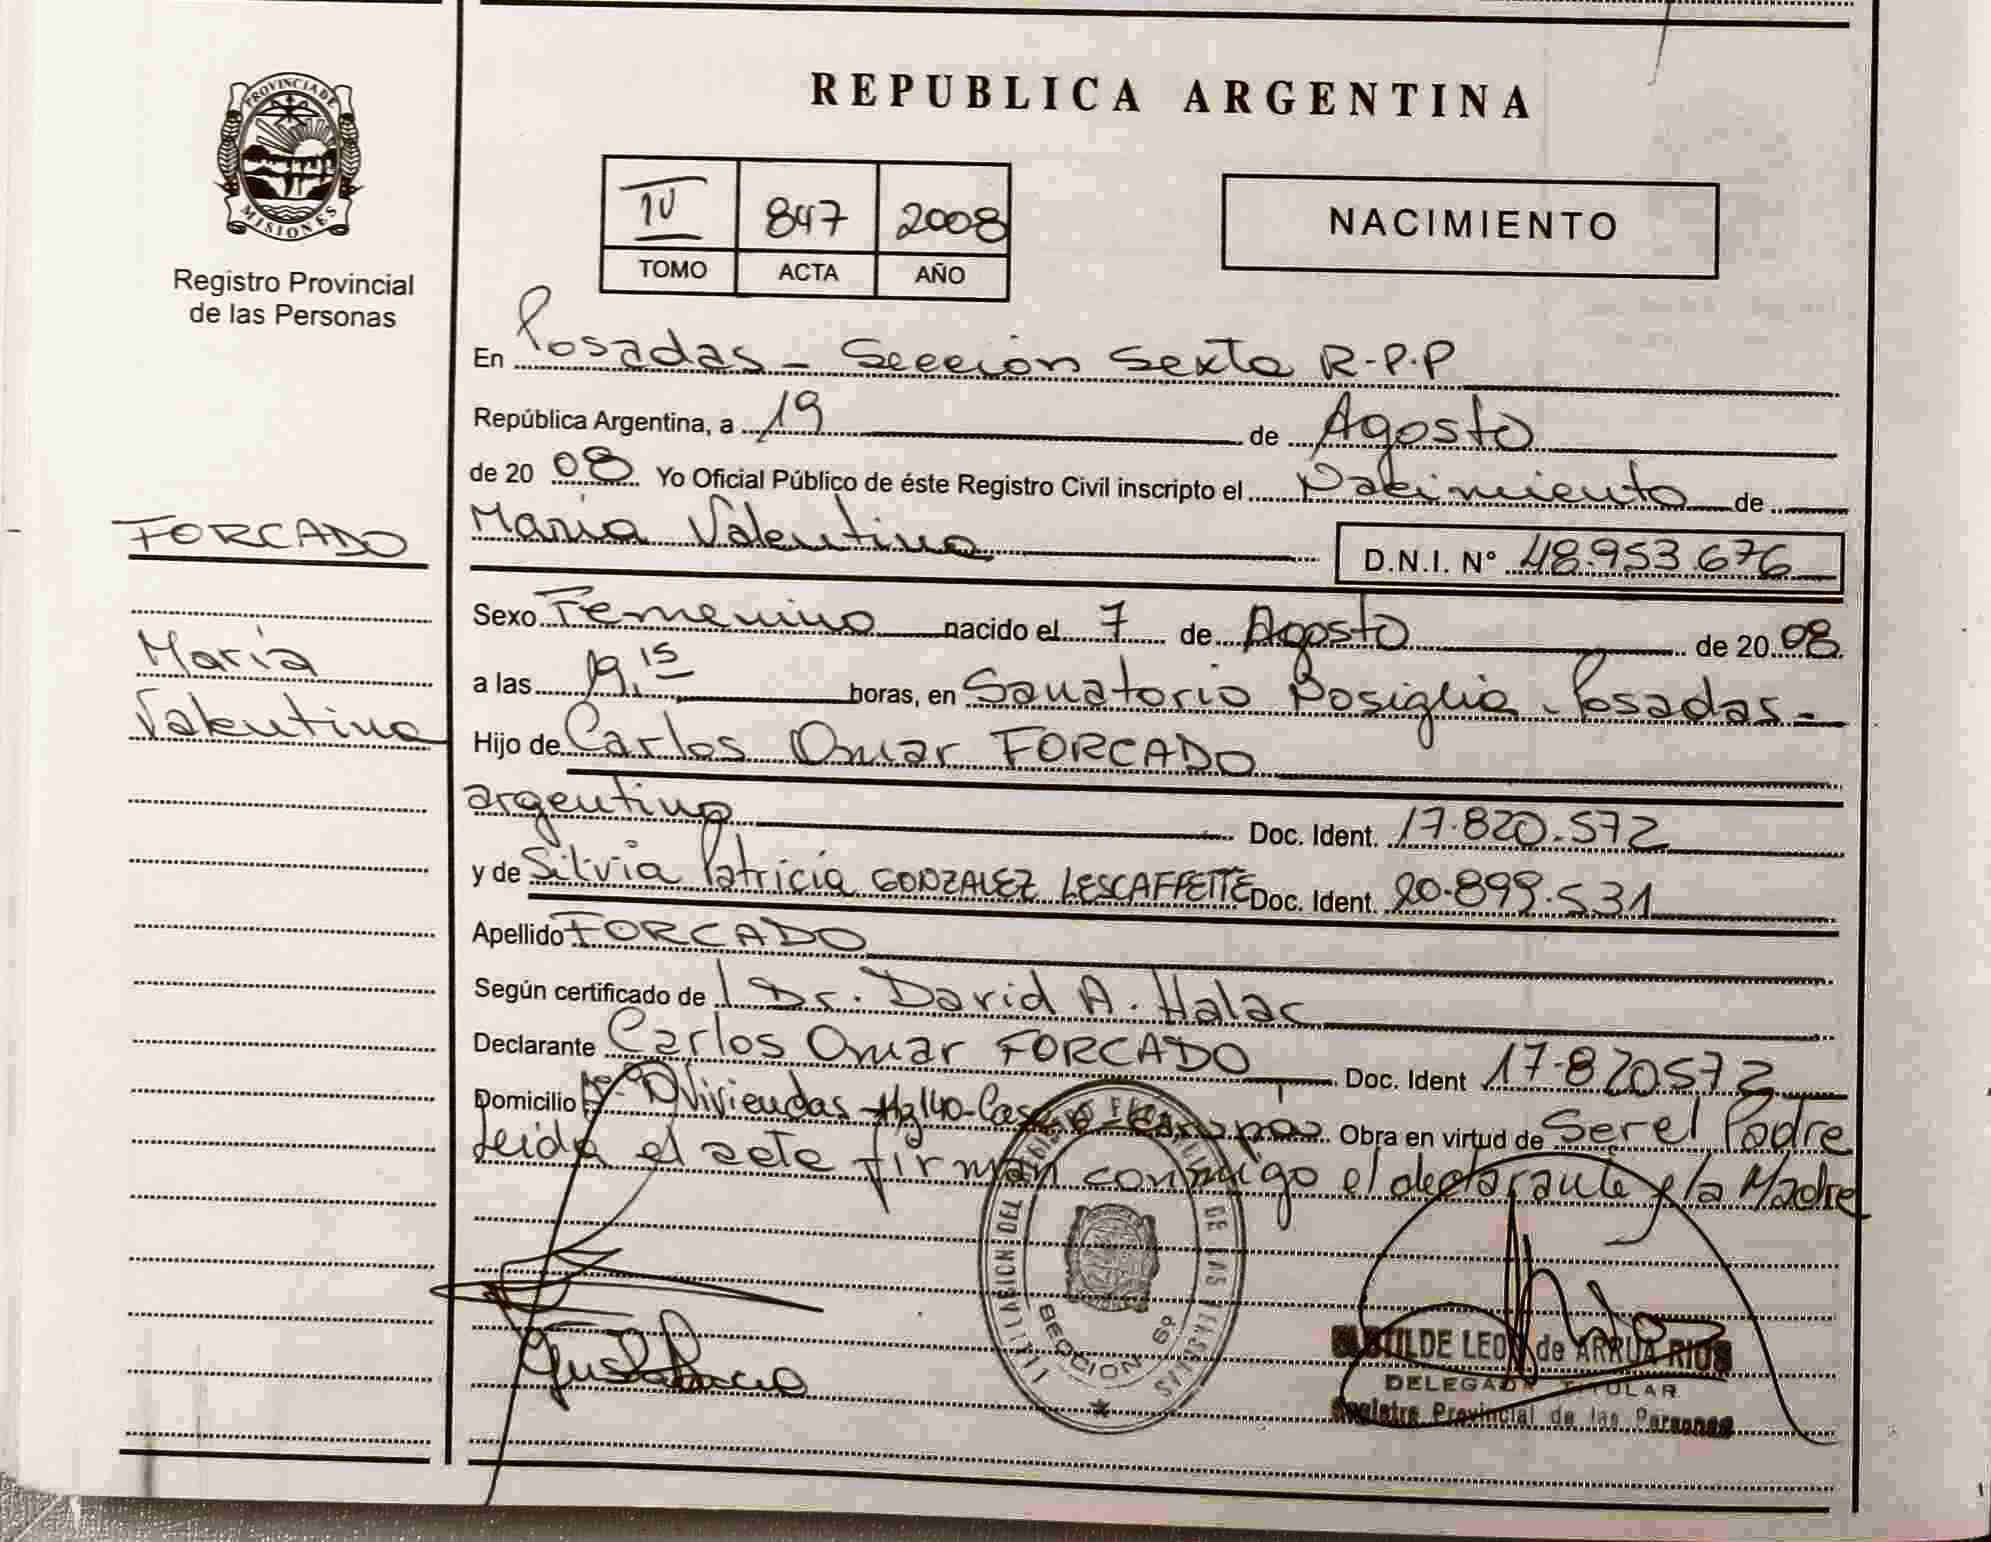 REPUBLICA ARGENTINA
PROVINCIA DE
MISIONES
Registro Provincial
de las Personas
IV 847 2008
TOMO ACTA AÑO
NACIMIENTO
En Posadas - Sección Sexta R-P.P
República Argentina, a 19 de Agosto
de 20 08 Yo Oficial Público de éste Registro Civil inscripto el Nacimiento de
María Valentina D.N.I. N° 48.953.676
FORCADO
María
Valentina
Sexo Femenino nacido el 7 de Agosto de 20 08
a las 19,15 horas, en Sanatorio Posiglia - Posadas -
Hijo de Carlos Omar FORCADO
argentino Doc. Ident. 17.820.572
y de Silvia Patricia GONZALEZ LESCAFFETTE Doc. Ident. 20.899.531
Apellido FORCADO
Según certificado de Dr. David A. Halac
Declarante Carlos Omar FORCADO Doc. Ident 17.820572
Domicilio Viviendas Obra en virtud de Ser el Padre
Leída el acta firman conmigo el declarante y la Madre
DE LAS PERSONAS
SECCION 6º
LEON de ARRUA RIOS
DELEGADA TITULAR
Registro Provincial de las Personas